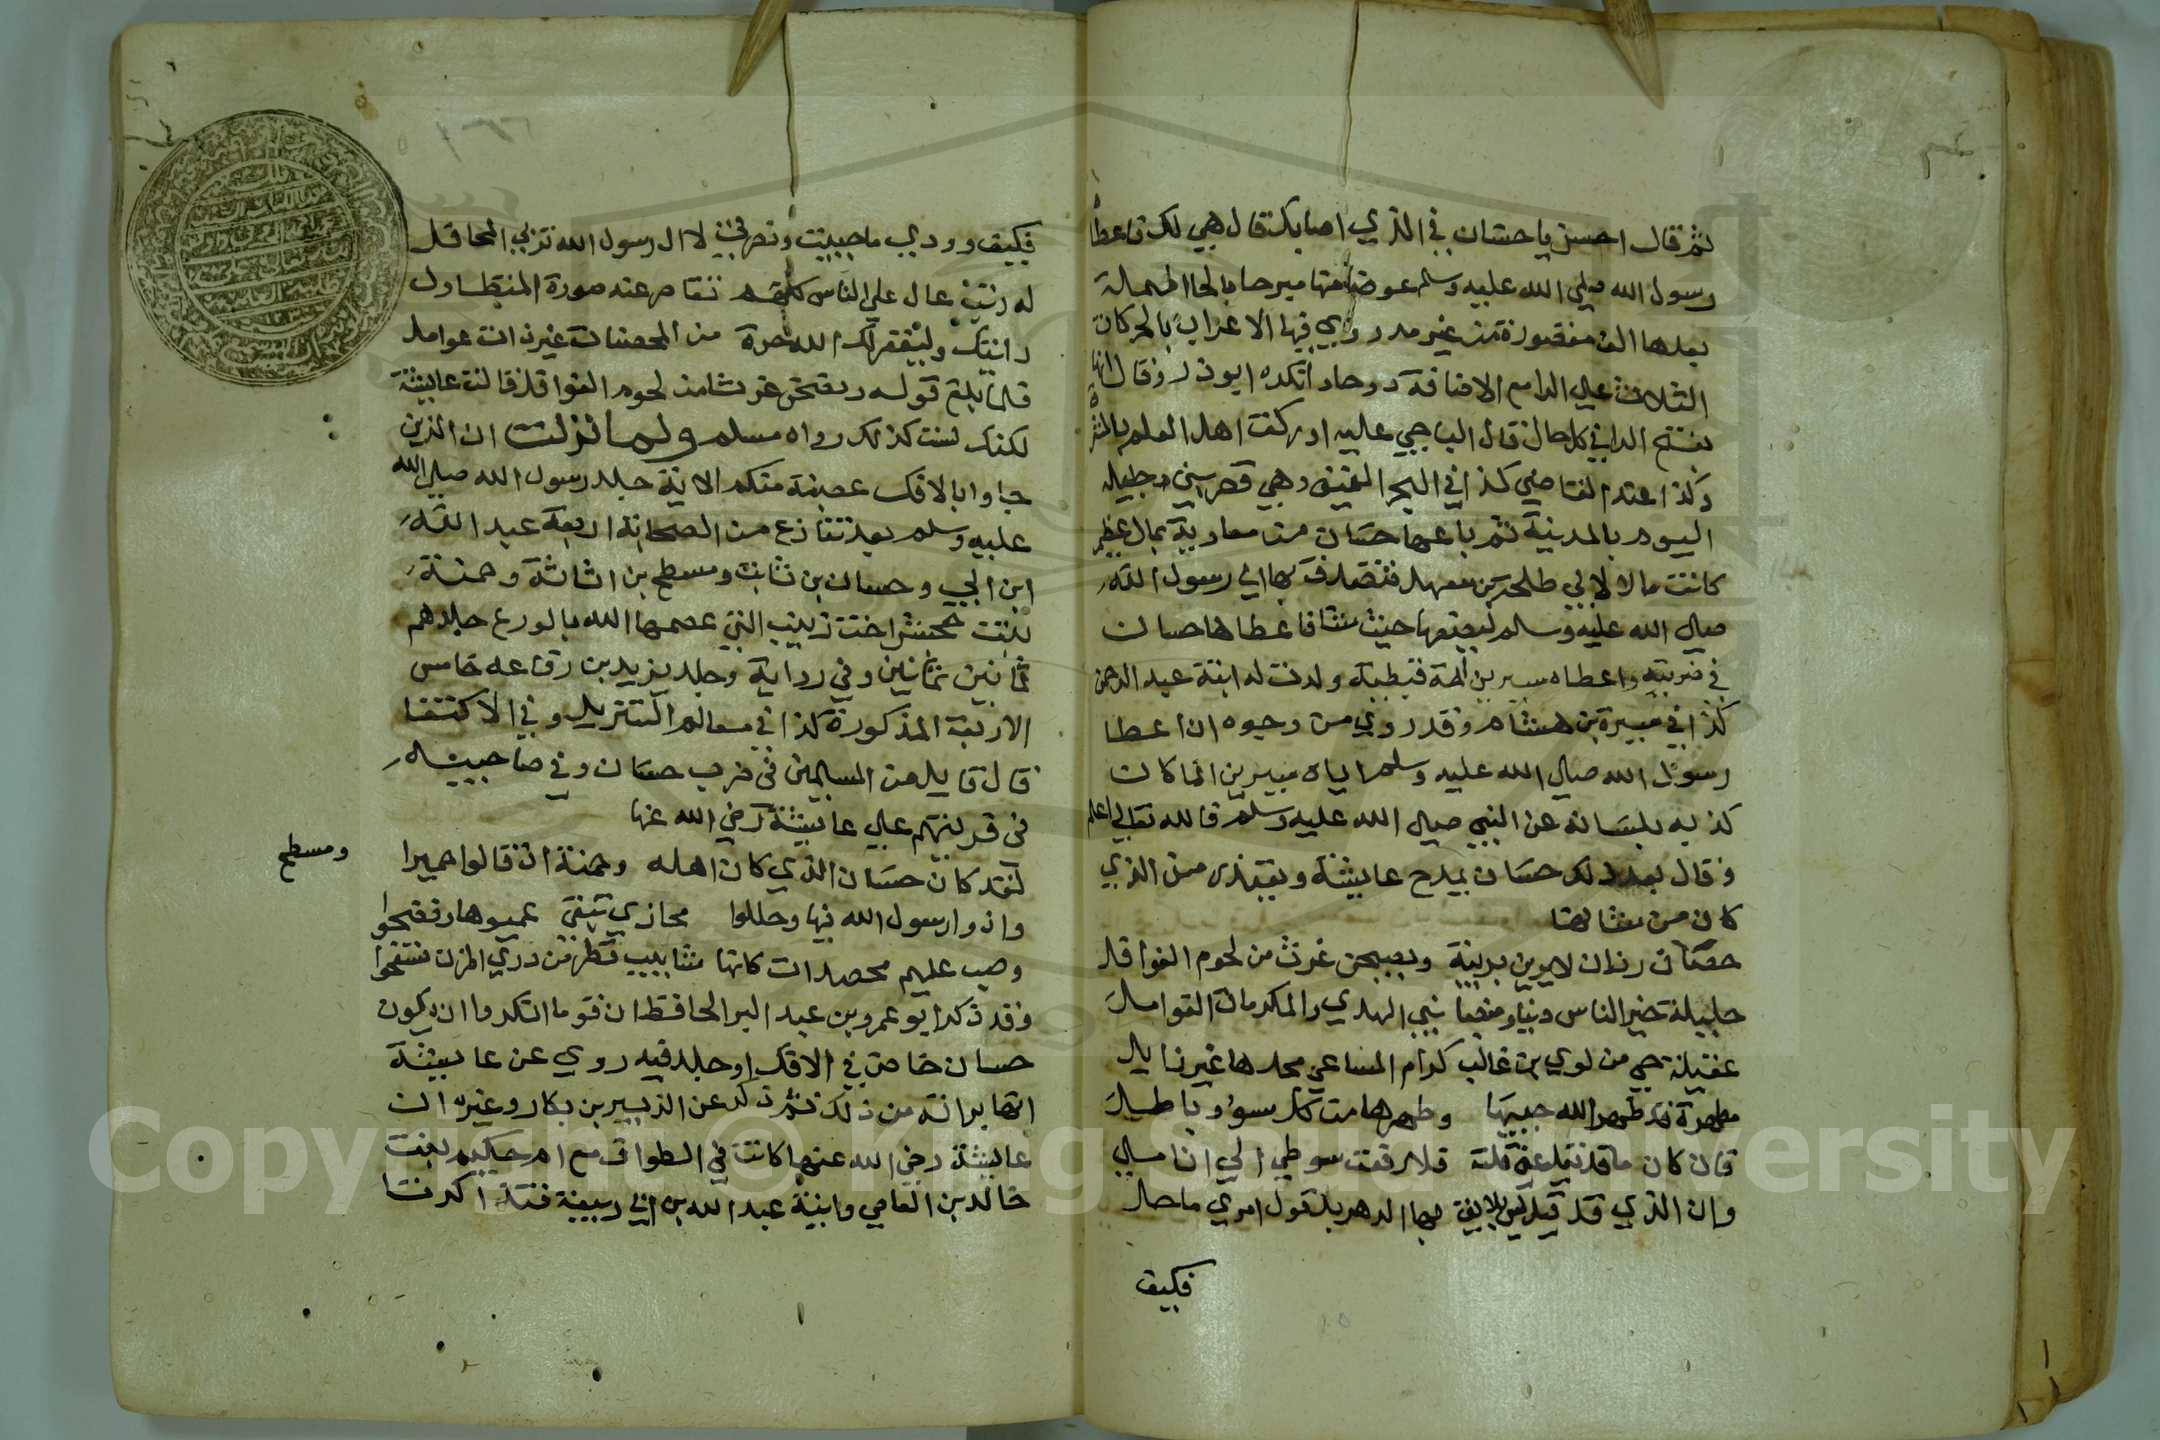 ثم قال احسن يا حسان في الذي اصابك قال هي لك فاعطاه
رسول الله صلى الله عليه وسلم عوضا منها بيرحا بالحا المهملة
بعدها الف مقصورة من غير مد روي فيها الاعراب بالحركات
الثلاث على الرا مع الاضافة دوحاد انكره ابو ذر وقال انها
بفتح الرا في كل حال قال الباجي عليه ادركت اهل العلم بالمشرق
وكذا عند القاضي كذا في البحر العميق وهي قصر بني جديلة
اليوم بالمدينة ثم باعها حسان من معاوية بمال عظيم
كانت مالا لابي طلحة بن سهل فتصدق بها الى رسول الله
صلى الله عليه وسلم ليضعها حيث شا فاعطاها حسان
في ضربته واعطاه سيرين امة قبطية ولدت له ابنة عبد الرحمن
كذا في سيرة بن هشام وقد روي من وجوه ان اعطا
رسول الله صلى الله عليه وسلم اياه سيرين انما كان
لذبه بلسانه عن النبي صلى الله عليه وسلم فالله تعالى اعلم
وقال بعد ذلك حسان يمدح عايشة ويعتذر من الذي
كان من مقالته
حصان رزان لا يزن بريبة وتصبح غرثى من لحوم الغوافل
حليلة خير الناس دينا ومنصبا نبي الهدي والمكرمات الفواضل
عقيلة حي من لوي بن غالب كرام المساعي مجدها غير زايل
مطهرة قد طهر الله جيبها وطهرها من كل سوء وباطل
فان كان ما قد قيل عني قلته فلا رفعت سوطي الي انا ملي
وان الذي قد قيل ليس بلايق بها الدهر بل قول امري ماحل
فكيف
فكيف وودي ما حييت ونصرتي لال رسول الله زين المحافل
له رتب عال على الناس كلهم تقاصر عنه سورة المتطاول
رايتك وليغفر لك الله حرة من المحصنات غير ذات غوامل
فلما بلغ قوله وتصبح غرثا من لحوم الغوافل قالت عايشة
لكنك لست كذلك رواه مسلم ولما نزلت ان الذين
جاوا بالافك عصبة منكم الاية جلد رسول الله صلى الله
عليه وسلم بعد تنازع من الصحابة اربعة عبد الله
ابن ابي وحسان بن ثابت ومسطح بن اثاثة وحمنة
بنت جحش اخت زينب التي عصمها الله بالورع جلدهم
ثمانين ثمانين وفي رواية وجلد يزيد بن رفاعه خامس
الاربعة المذكورة كذا في معالم التنزيل وفي الاكتفا
قال قايل من المسلمين في ضرب حسان وفي صاحبيه
في فريتهم على عايشة رضي الله عنها
لقد كان حسان الذي كان اهله وحمنة اذ قالوا هجيرا
ومسطح
واذوا رسول الله فيها وجللوا مخازي تبقى عمموها وفضحوا
وصب عليهم محصدات كانها شابيب قطر من ذري المزن تسفح
وقد ذكر ابو عمرو بن عبد البر الحافظ ان قوما انكروا ان يكون
حسان خاض في الافك او جلد فيه روي عن عايشة
انها براته من ذلك ثم ذكر عن الزبير بن بكار وغيره ان
عايشة رضي الله عنها كانت في الطواف مع ام حكيم بنت
خالد بن العاصي وابنة عبد الله بن ابي ربيعة فتذاكرتا